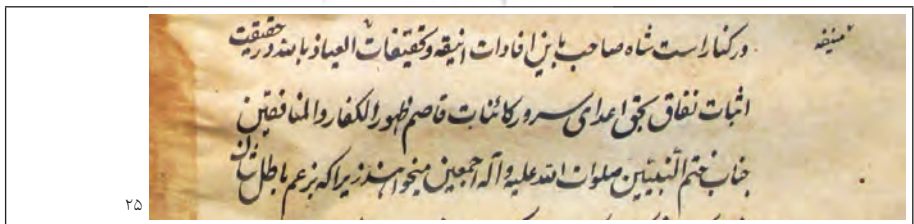 منیفه
درکنار است شاه صاحب باین افادات انیقه و تحقیقات العیاذ بالله در حقیقت
اثبات نفاق بحق اعدای سرور کائنات قاصم ظهور الکفار و المنافقین
جناب ختم النبیین صلوات الله علیه و آله اجمعین میخواهند زیرا که بزعم باطل شان
۲۵